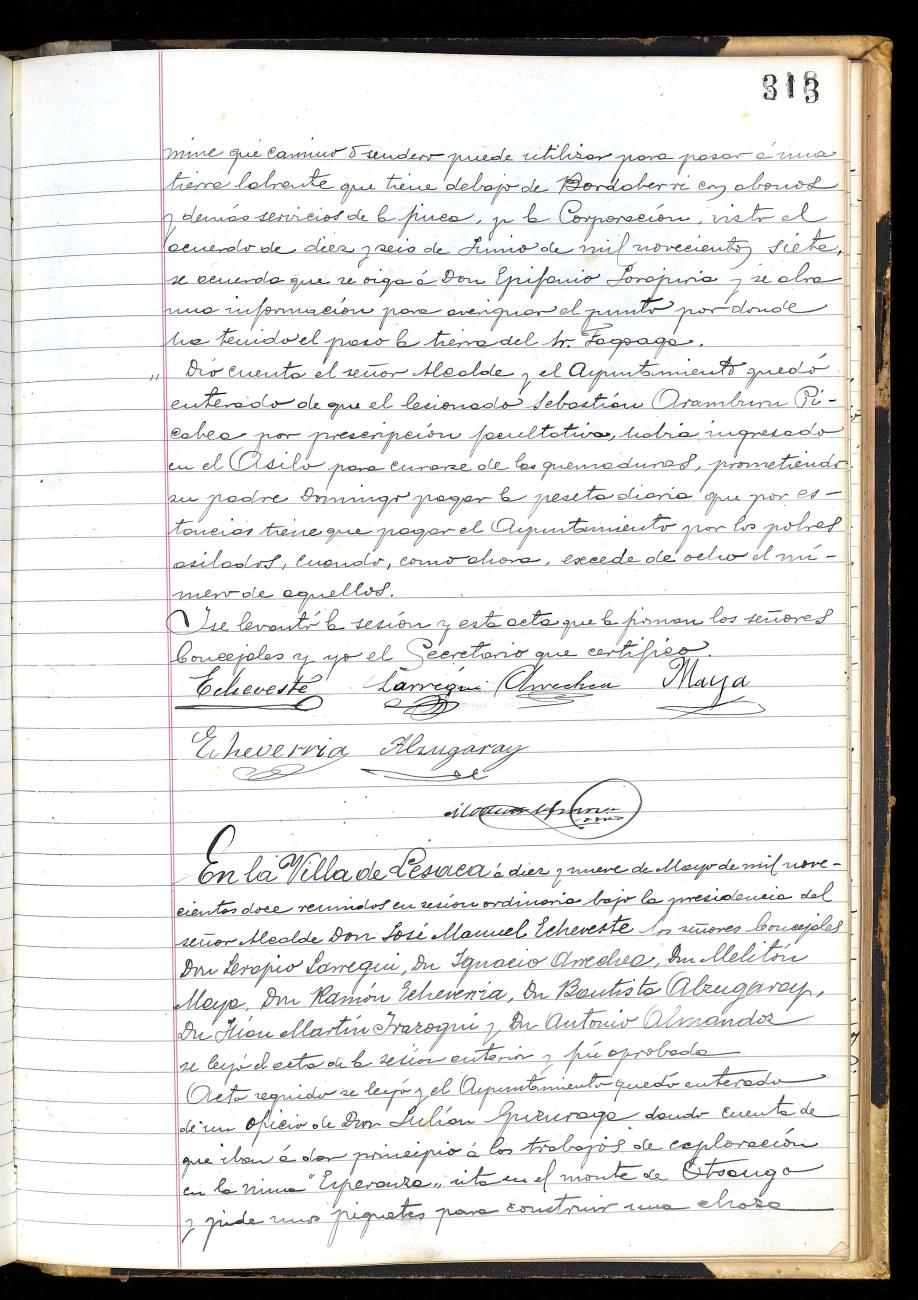 313
mine qué camino ó sendero puede utilizar para pasar á una
tierra labrante que tiene debajo de Bordaberri con abonos
y demás servicios de la finca, y la Corporación, visto el
acuerdo de diez y seis de Junio de mil novecientos siete,
se acuerda que se oiga á Don Epifanio y se abra
una información para averiguar el punto por donde
ha tenido el paso la tierra del Sr. Fagoaga.
" Dió cuenta el señor Alcalde y el Ayuntamiento quedó
enterado de que el lesionado Sebastián Aramburu Pi-
cabea por prescripción facultativa, había ingresado
en el Asilo para curarse de las quemaduras, prometiendo
su padre Domingo pagar la peseta diaria que por es-
tancias tiene que pagar el Ayuntamiento por los pobres
asilados, cuando, como ahora, excede de ocho el nú-
mero de aquellos.
Y se levantó la sesión y esta acta que la firman los señores
Concejales y yo el Secretario que certifico.
Echeveste Larregui Arrechea Maya
Echeverria Alzugaray
En la Villa de Lesaca á diez y nueve de Mayo de mil nove-
cientos doce reunidos en sesión ordinaria bajo la presidencia del
señor Alcalde Don José Manuel Echeveste los señores Concejales
Don Serapio Larregui, Dn Ignacio Arrechea, Dn Melitón
Maya, Don Ramón Echeverria, Dn Bautista Alzugaray,
Dn Juan Martín Irazoqui y Dn Antonio Almandoz
se leyó el acta de la sesión anterior y fué aprobada
Acto seguido se leyó y el Ayuntamiento quedó enterado
de un oficio de Don Julián dando cuenta de
que iban á dar principio á los trabajos de exploración
en la mina "Esperanza" sita en el monte de Otsango
y pide unos piquetes para construir una choza